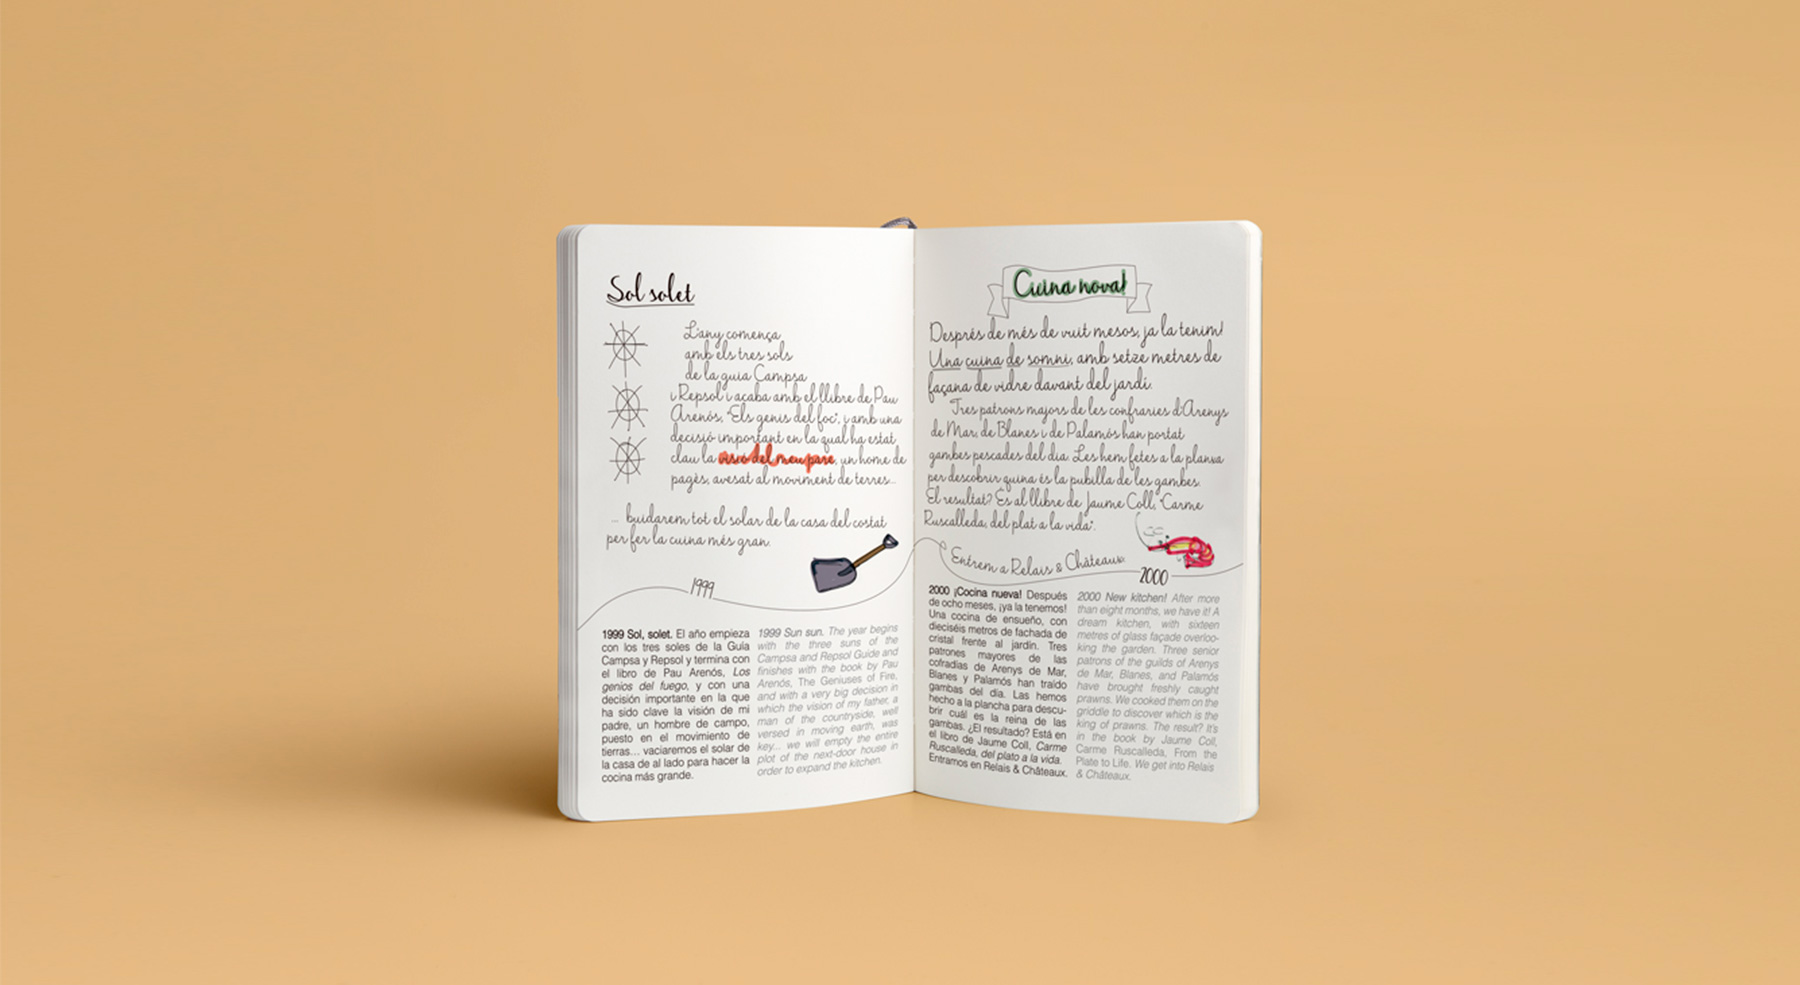 Sol solet
L'any comença
amb els tres sols
de la guia Campsa
i Repsol i acaba amb el llibre de Pau
Arenós, "Els genis del foc", i amb una
decisió important en la qual ha estat
clau la visió del meu pare, un home de
pagès, avesat al moviment de terres...
... buidarem tot el solar de la casa del costat
per fer la cuina més gran.
1999
1999 Sol, solet. El año empieza
con los tres soles de la Guía
Campsa y Repsol y termina con
el libro de Pau Arenós, Los
genios del fuego, y con una
decisión importante en la que
ha sido clave la visión de mi
padre, un hombre de campo,
puesto en el movimiento de
tierras... vaciaremos el solar de
la casa de al lado para hacer la
cocina más grande.
1999 Sun sun. The year begins
with the three suns of the
Campsa and Repsol Guide and
finishes with the book by Pau
Arenós, The Geniuses of Fire,
and with a very big decision in
which the vision of my father, a
man of the countryside, well
versed in moving earth, was
key... we will empty the entire
plot of the next-door house in
order to expand the kitchen.
Cuina nova!
Després de més de vuit mesos, ja la tenim!
Una cuina de somni, amb setze metres de
façana de vidre davant del jardí.
Tres patrons majors de les confraries d'Arenys
de Mar, de Blanes i de Palamós han portat
gambes pescades del dia. Les hem fetes a la planxa
per descobrir quina és la pubilla de les gambes.
El resultat? És al llibre de Jaume Coll, "Carme
Ruscalleda, del plat a la vida".
Entrem a Relais & Châteaux.
2000
2000 ¡Cocina nueva! Después
de ocho meses, ¡ya la tenemos!
Una cocina de ensueño, con
dieciséis metros de fachada de
cristal frente al jardín. Tres
patrones mayores de las
cofradías de Arenys de Mar,
Blanes y Palamós han traído
gambas del día. Las hemos
hecho a la plancha para descu-
brir cuál es la reina de las
gambas. ¿El resultado? Está en
el libro de Jaume Coll, Carme
Ruscalleda, del plato a la vida.
Entramos en Relais & Châteaux.
2000 New kitchen! After more
than eight months, we have it! A
dream kitchen, with sixteen
metres of glass façade overloo-
king the garden. Three senior
patrons of the guilds of Arenys
de Mar, Blanes, and Palamós
have brought freshly caught
prawns. We cooked them on the
griddle to discover which is the
king of prawns. The result? It's
in the book by Jaume Coll,
Carme Ruscalleda, From the
Plate to Life. We get into Relais
& Châteaux.